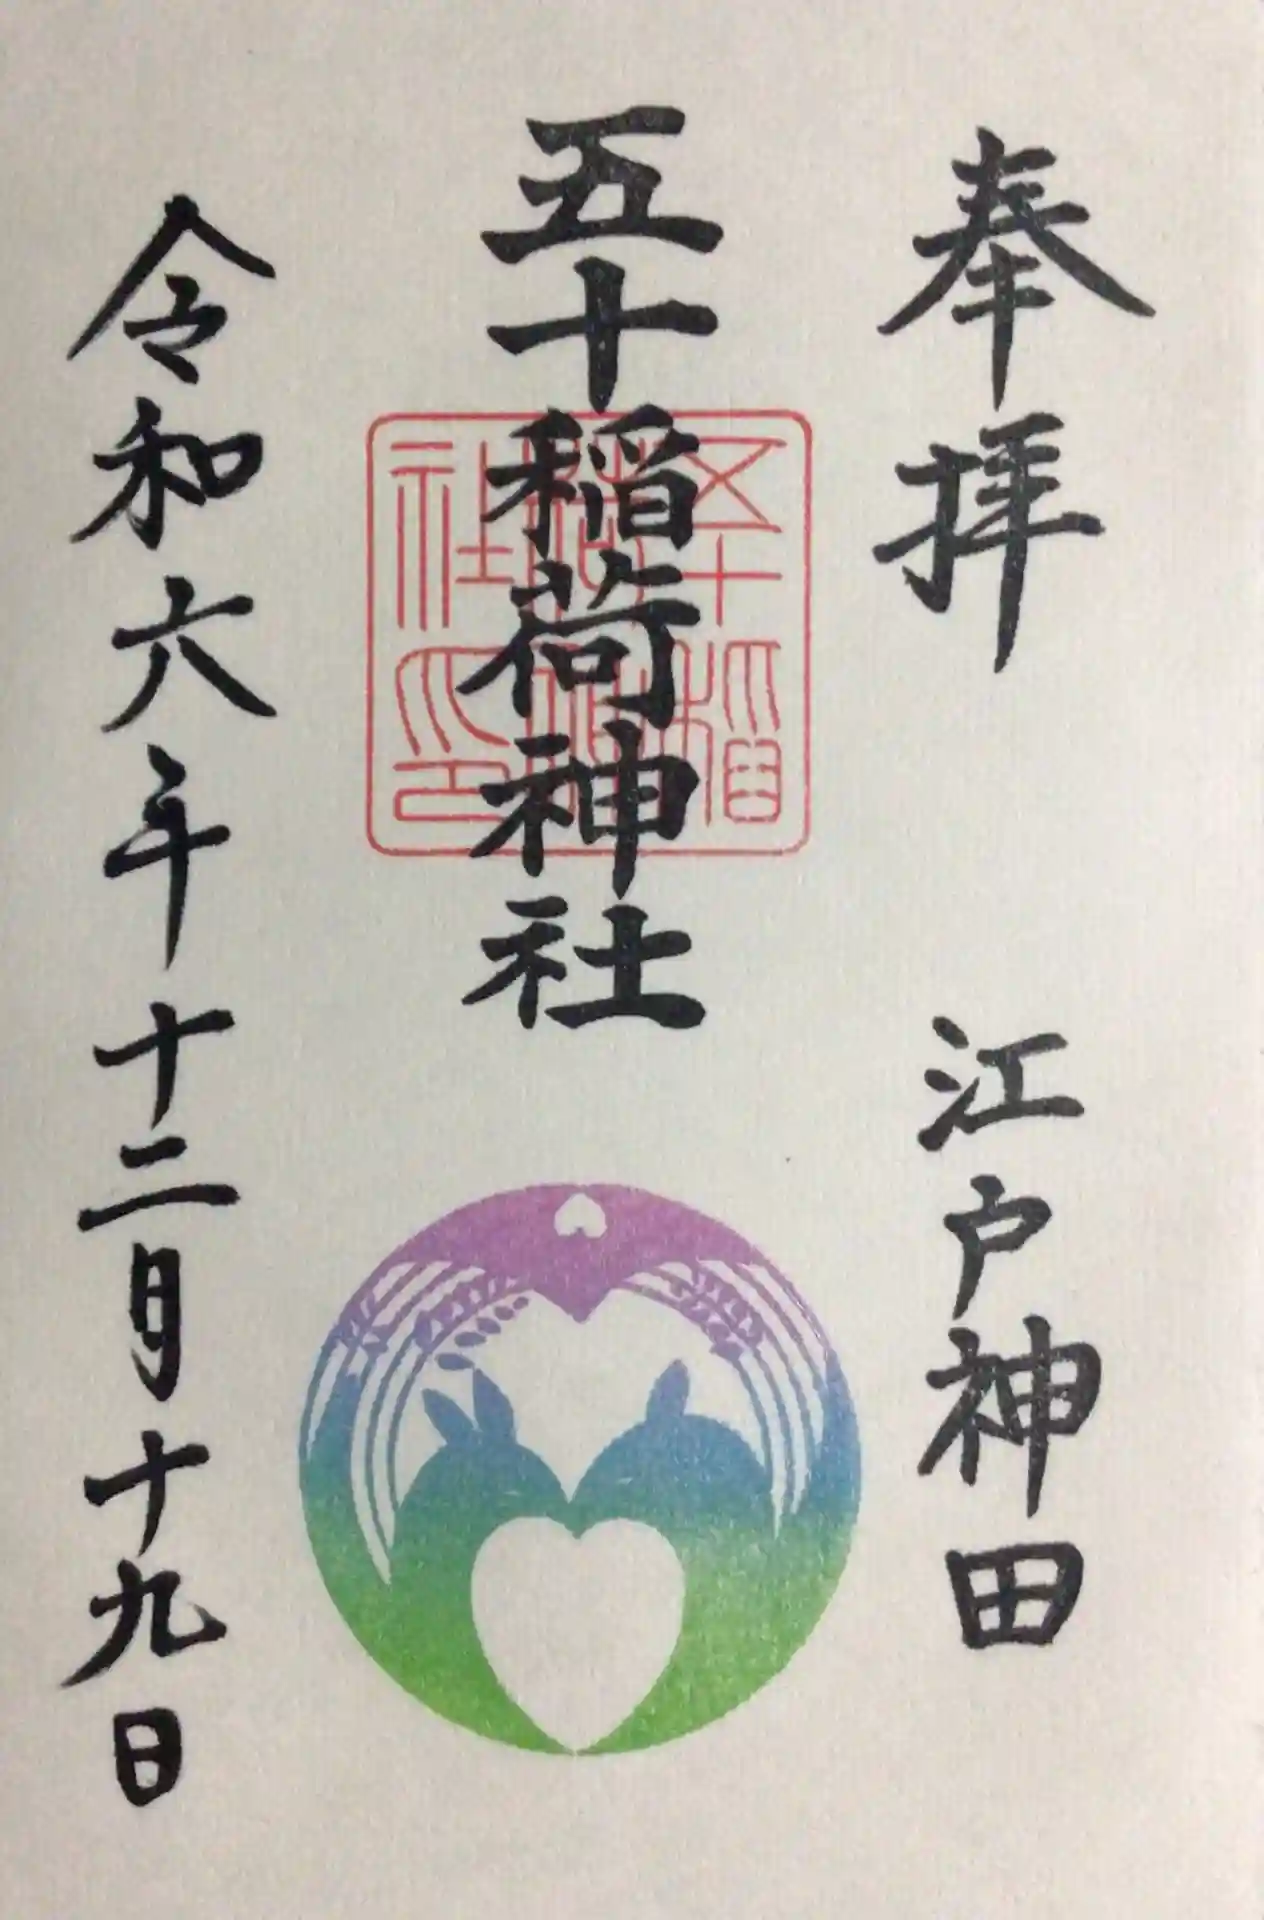 奉拝　江戸神田
五十稲荷神社
五十稲荷神社印
令和六年十二月十九日